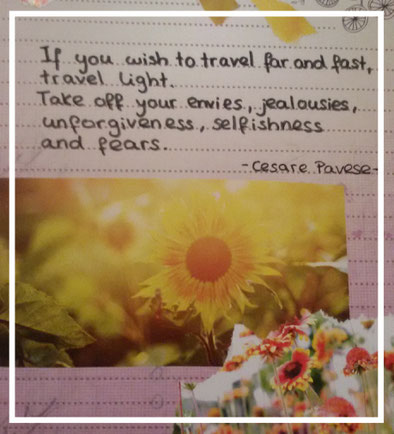 If you wish to travel far and fast,
travel light.
Take off your envies, jealousies,
unforgiveness, selfishness
and fears.
-Cesare Pavese-